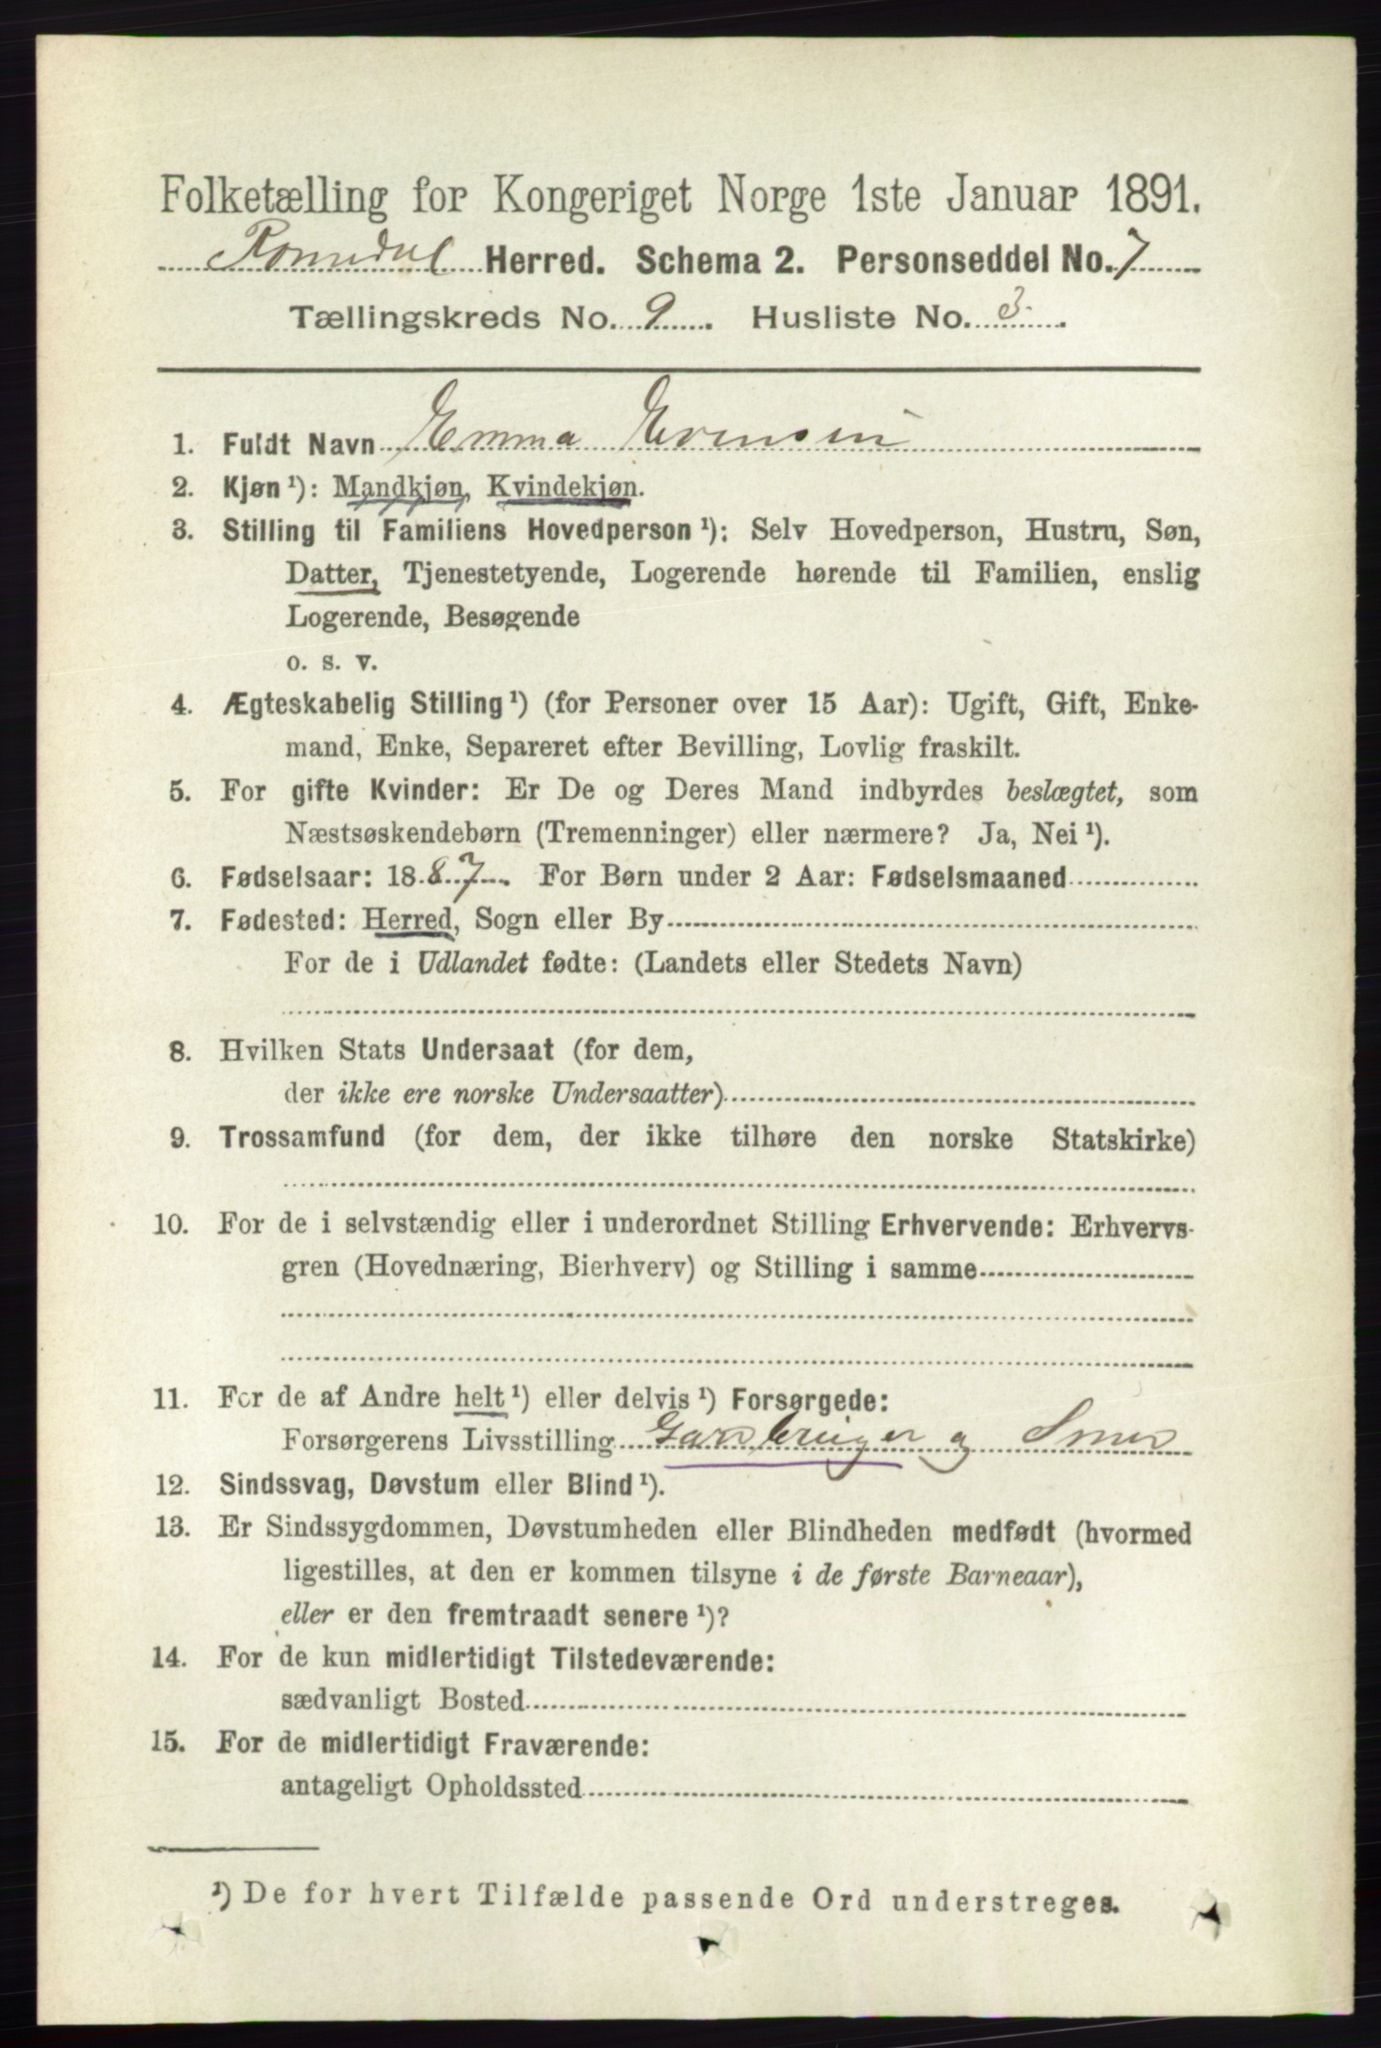 Folketælling for Kongeriget Norge 1ste Januar 1891.
Romedal Herred. Schema 2. Personseddel No. 7
Tællingskreds No. 9. Husliste No. 3.
1. Fuldt Navn Emma Evensen
2. Kjøn ¹): Mandkjøn, Kvindekjøn.
3. Stilling til Familiens Hovedperson ¹): Selv Hovedperson, Hustru, Søn,
Datter, Tjenestetyende, Logerende hørende til Familien, enslig
Logerende, Besøgende
o. s. v.
4. Ægteskabelig Stilling ¹) (for Personer over 15 Aar): Ugift, Gift, Enke-
mand, Enke, Separeret efter Bevilling, Lovlig fraskilt.
5. For gifte Kvinder: Er De og Deres Mand indbyrdes beslægtet, som
Næstsøskendebørn (Tremenninger) eller nærmere? Ja, Nei ¹).
6. Fødselsaar: 1887. For Børn under 2 Aar: Fødselsmaaned
7. Fødested: Herred, Sogn eller By
For de i Udlandet fødte: (Landets eller Stedets Navn)
8. Hvilken Stats Undersaat (for dem,
der ikke ere norske Undersaatter)
9. Trossamfund (for dem, der ikke tilhøre den norske Statskirke)
10. For de i selvstændig eller i underordnet Stilling Erhvervende: Erhvervs-
gren (Hovednæring, Bierhverv) og Stilling i samme
11. For de af Andre helt ¹) eller delvis ¹) Forsørgede:
Forsørgerens Livsstilling Gaardbruger og Smed
12. Sindssvag, Døvstum eller Blind ¹).
13. Er Sindssygdommen, Døvstumheden eller Blindheden medfødt (hvormed
ligestilles, at den er kommen tilsyne i de første Barneaar),
eller er den fremtraadt senere ¹)?
14. For de kun midlertidigt Tilstedeværende:
sædvanligt Bosted
15. For de midlertidigt Fraværende:
antageligt Opholdssted
¹) De for hvert Tilfælde passende Ord understreges.